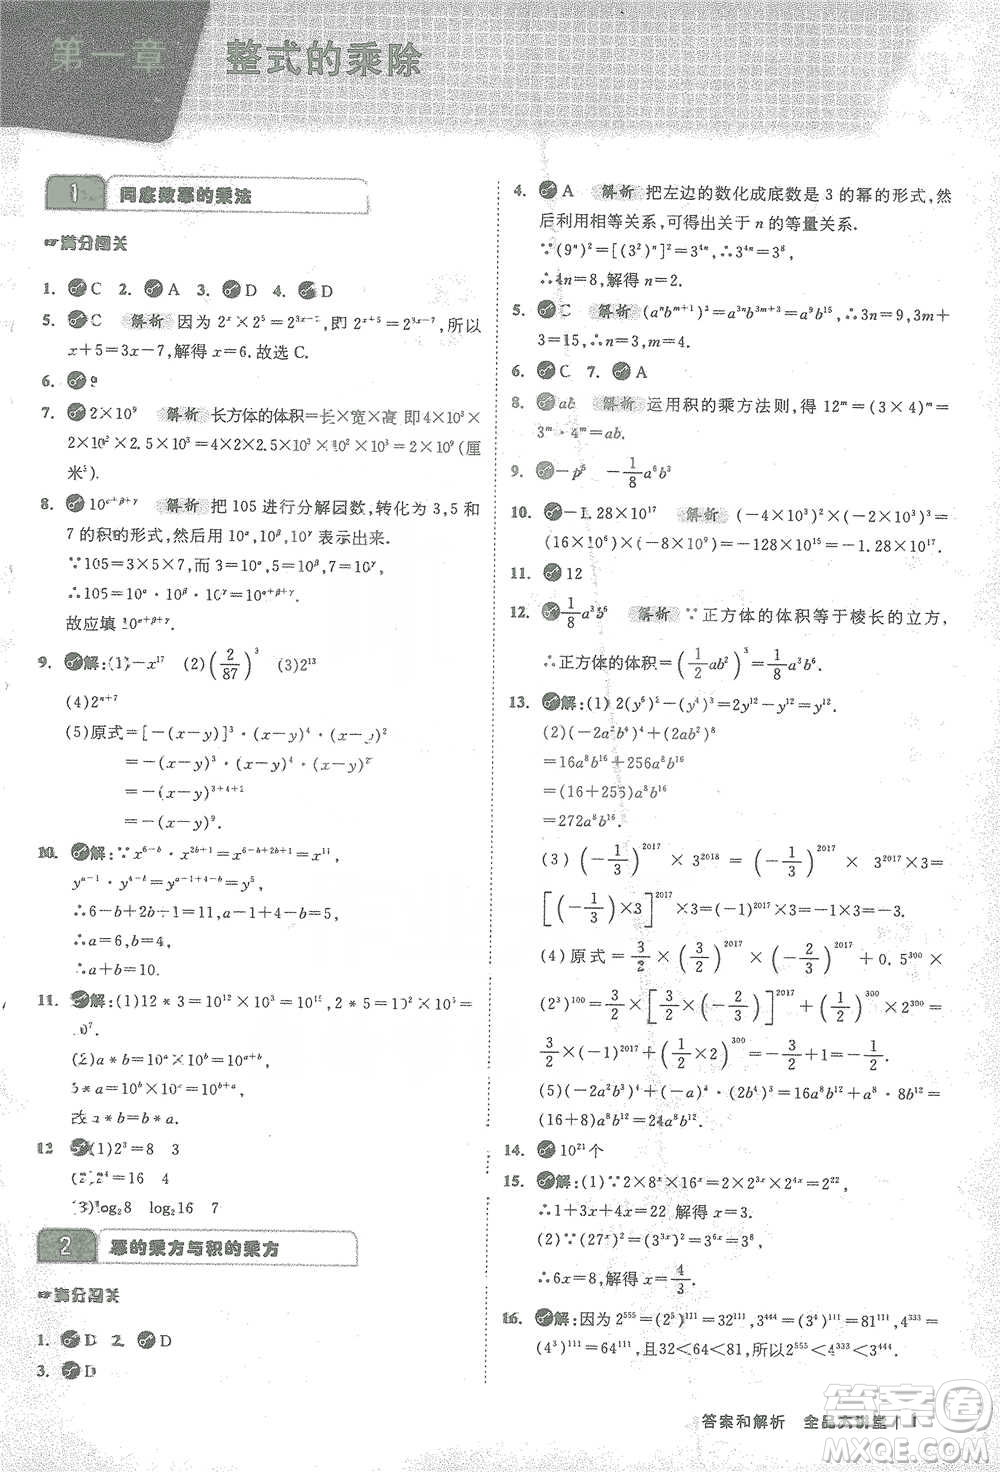 第一章 整式的乘除
1 同底数幂的乘法
满分闯关
1. C 2. A 3. D 4. D
5. C 解析 因为 2ˣ×2⁵=2³ˣ⁻⁷,即 2ˣ⁺⁵=2³ˣ⁻⁷,所以
x+5=3x-7,解得 x=6.故选 C.
6. 9
7. 2×10⁹ 解析 长方体的体积=长×宽×高 即 4×10³×
2×10²×2.5×10³=4×2×2.5×10³×10²×10³(厘
米³).
8. 10^(α+β+γ) 解析 把 105 进行分解因数,转化为 3,5 和
7 的积的形式,然后用 10^α,10^β,10^γ 表示出来.
∵105=3×5×7,而 3=10^α,5=10^β,7=10^γ,
∴105=10^α·10^β·10^γ=10^(α+β+γ).
故应填 10^(α+β+γ).
9. 解:(1)-x¹⁷ (2)(2/87)³ (3)2¹³
(4)2ⁿ⁺⁷
(5)原式=[-(x-y)]³·(x-y)⁴·(x-y)²
=-(x-y)³·(x-y)⁴·(x-y)²
=-(x-y)³⁺⁴⁺²
=-(x-y)⁹.
10. 解:∵x^(6-b)·x^(2b+1)=x^(6-b+2b+1)=x¹¹,
y^(a-1)·y^(4-b)=y^(a-1+4-b)=y⁵,
∴6-b+2b+1=11,a-1+4-b=5,
∴a=6,b=4,
∴a+b=10.
11. 解:(1)12*3=10¹²×10³=10¹⁵,2*5=10²×10⁵=
10⁷.
(2)a*b=10ᵃ×10ᵇ=10^(a+b),
b*a=10ᵇ×10ᵃ=10^(b+a),
故 a*b=b*a.
12 (1)2³=8 3
(2)2⁴=16 4
(3)log₂8 log₂16 7
2 幂的乘方与积的乘方
满分闯关
1. D 2. D
3. D
4. A 解析 把左边的数化成底数是 3 的幂的形式,然
后利用相等关系,可得出关于 n 的等量关系.
∵(9ⁿ)²=[(3²)ⁿ]²=3⁴ⁿ,∴3⁴ⁿ=3⁸,
∴4n=8,解得 n=2.
5. C 解析 (aⁿb^(m+1))³=a³ⁿb^(3m+3)=a⁹b¹⁵,∴3n=9,3m+
3=15,∴n=3,m=4.
6. C 7. A
8. ab 解析 运用积的乘方法则,得 12ᵐ=(3×4)ᵐ=
3ᵐ·4ᵐ=ab.
9. -p⁵ -1/8a⁶b³
10. -1.28×10¹⁷ 解析 (-4×10³)²×(-2×10³)³=
(16×10⁶)×(-8×10⁹)=-128×10¹⁵=-1.28×10¹⁷.
11. 12
12. 1/8a³b⁶ 解析 ∵正方体的体积等于棱长的立方,
∴正方体的体积=(1/2ab²)³=1/8a³b⁶.
13. 解:(1) 2(y⁶)²-(y⁴)³=2y¹²-y¹²=y¹².
(2)(-2a²b⁴)⁴+(2ab²)⁸
=16a⁸b¹⁶+256a⁸b¹⁶
=(16+256)a⁸b¹⁶
=272a⁸b¹⁶.
(3) (-1/3)²⁰¹⁷×3²⁰¹⁸=(-1/3)²⁰¹⁷×3²⁰¹⁷×3=
[(-1/3)×3]²⁰¹⁷×3=(-1)²⁰¹⁷×3=-1×3=-3.
(4) 原式=3/2×(3/2)²⁰¹⁷×(-2/3)²⁰¹⁷+0.5³⁰⁰×
(2³)¹⁰⁰=3/2×[3/2×(-2/3)]²⁰¹⁷+(1/2)³⁰⁰×2³⁰⁰=
3/2×(-1)²⁰¹⁷+(1/2×2)³⁰⁰=-3/2+1=-1/2.
(5)(-2a²b³)⁴+(-a)⁸·(2b⁴)³=16a⁸b¹²+a⁸·8b¹²=
(16+8)a⁸b¹²=24a⁸b¹².
14. 10²¹个
15. 解:(1)∵2×8ˣ×16ˣ=2×2³ˣ×2⁴ˣ=2²²,
∴1+3x+4x=22,解得 x=3.
(2)∵(27ˣ)²=[(3³)ˣ]²=3⁶ˣ=3⁸,
∴6x=8,解得 x=4/3.
16. 解:因为 2⁵⁵⁵=(2⁵)¹¹¹=32¹¹¹,3⁴⁴⁴=(3⁴)¹¹¹=81¹¹¹,
4³³³=(4³)¹¹¹=64¹¹¹,且 32<64<81,所以 2⁵⁵⁵<4³³³<3⁴⁴⁴.
答案和解析 全品大讲堂 1
答案圈
MXQE.COM